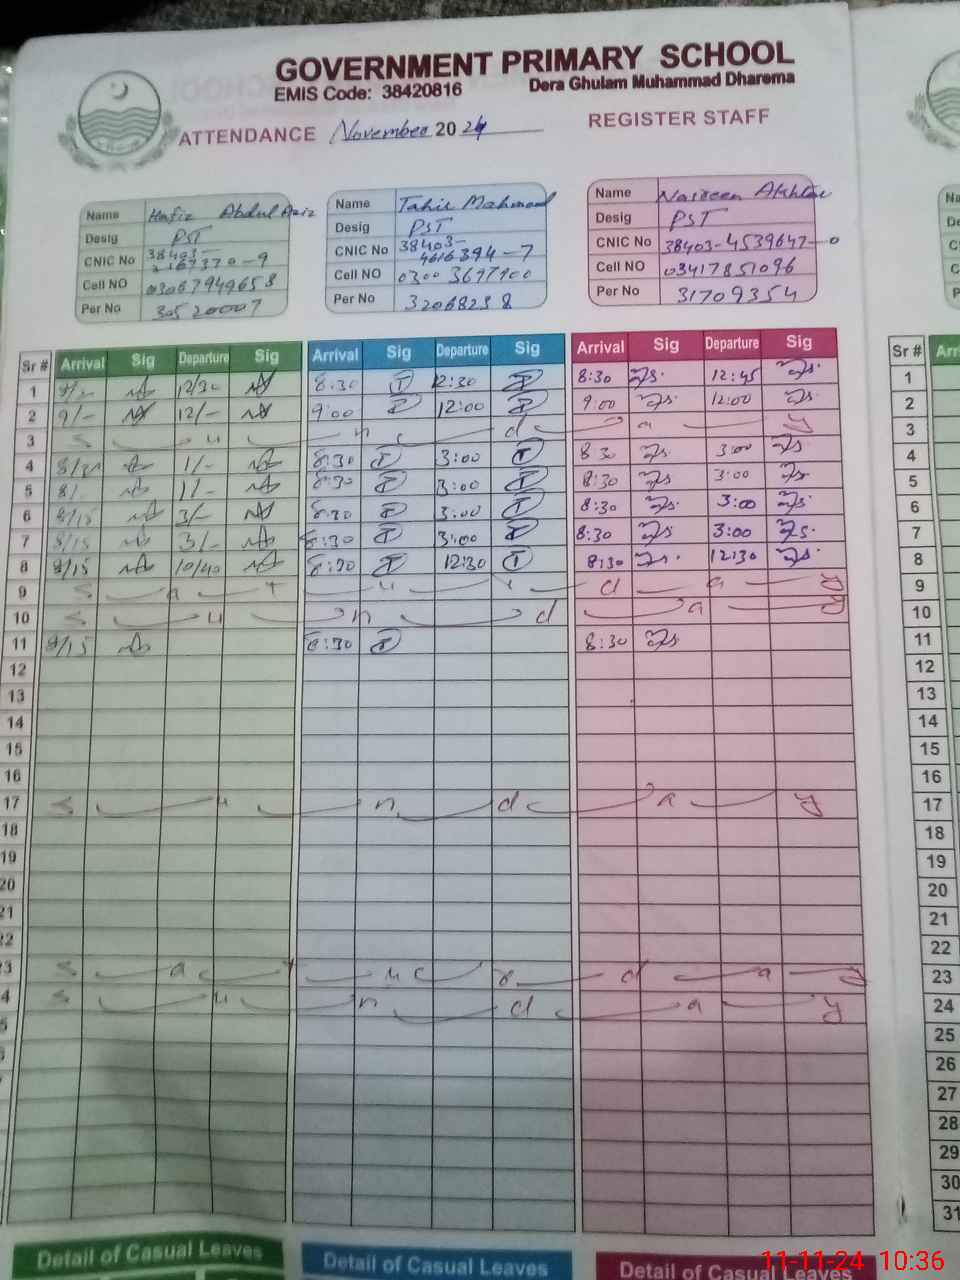 GOVERNMENT PRIMARY SCHOOL
EMIS Code: 38420816 Dera Ghulam Muhammad Dharema
ATTENDANCE November 2024 REGISTER STAFF
Name Hafiz Abdul Aziz Name Tahir Mahmood Name Nasreen Akhtar
Desig PST Desig PST Desig PST
CNIC No 38403- CNIC No 38403-4616394-7 CNIC No 38403-4539647-0
Cell NO Cell NO Cell NO 03417851096
Per No 30520007 Per No 32068238 Per No 31709354
Sr # Arrival Sig Departure Sig Arrival Sig Departure Sig Arrival Sig Departure Sig Sr #
1 12/30 8:30 12:30 8:30 12:45 1
2 9/- 12/- 9:00 12:00 9:00 12:00 2
3 S u n d a y 3
4 1/- 8:30 3:00 8:30 3:00 4
5 8/- 1/- 8:30 3:00 8:30 3:00 5
6 8/15 3/- 8:30 3:00 8:30 3:00 6
7 8/15 3/- 8:30 3:00 8:30 3:00 7
8 8/15 10/40 8:30 12:30 8:30 12:30 8
9 S a t u r d a y 9
10 S u n d a y 10
11 8/15 8:30 8:30 11
12 12
13 13
14 14
15 15
16 16
17 S u n d a y 17
18 18
19 19
20 20
21 21
22 22
23 S a t u r d a y 23
24 S u n d a y 24
25
26
27
28
29
30
31
Detail of Casual Leaves Detail of Casual Leaves Detail of Casual Leaves
11-11-24 10:36